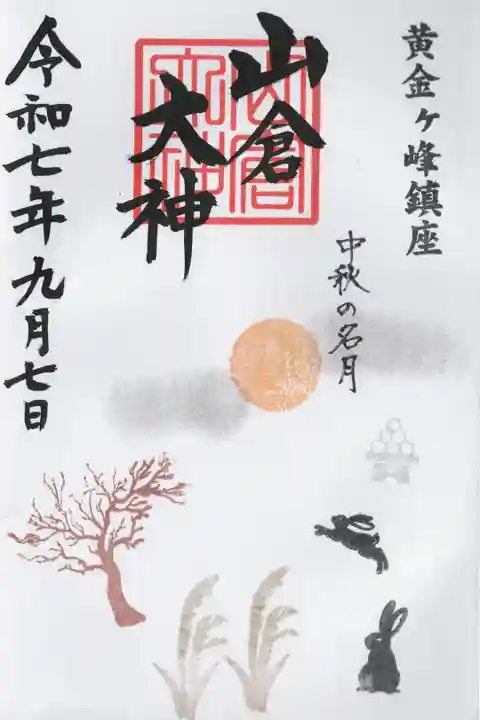 黄金ヶ峰鎮座
中秋の名月
山倉
大神
山倉
大神
令和七年九月七日